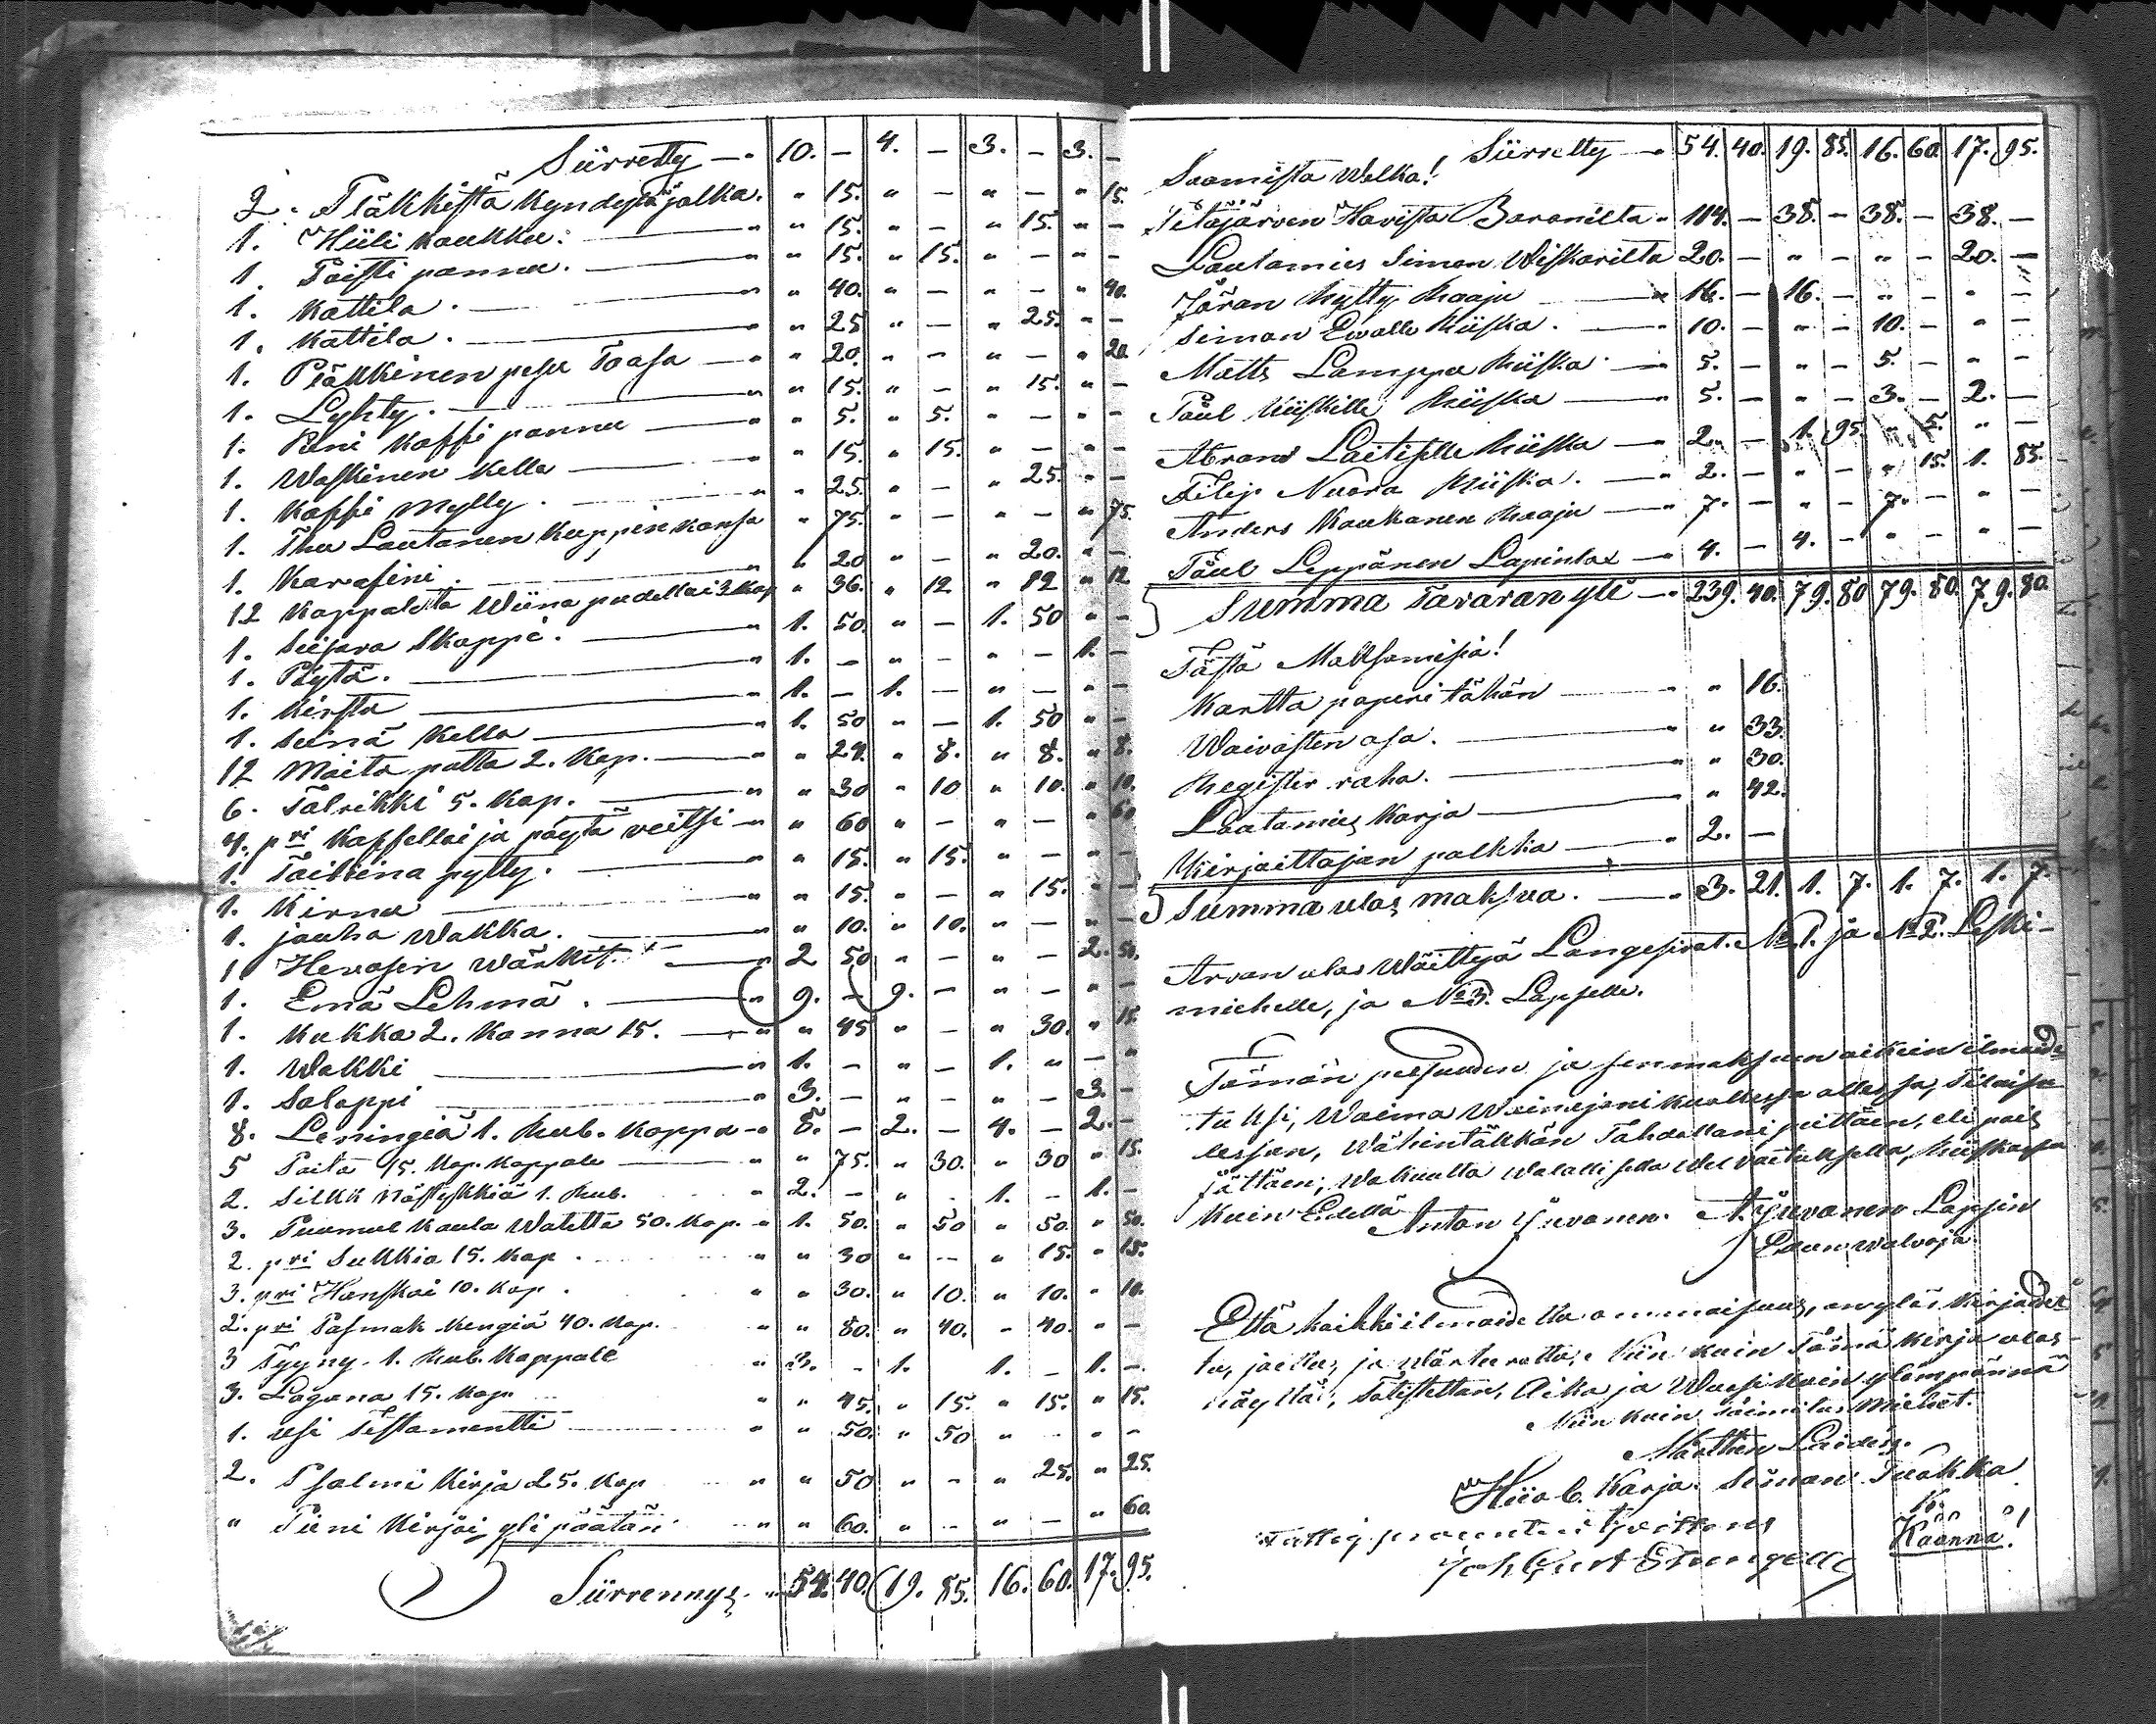 Siirretty — 10. — 4. — 3. — 3. —
2. Pläkkistä Kyndeljalka. " 15. " — " — " 15.
1. Hiili Koukku. " 15. " — " 15. " —
1. Paisti pannu. " 15. " 15. " — " —
1. Kattila. " 40. " — " — " 40.
1. Kattila. " 25 " — " 25. " —
1. Pläkkinen pesu Taasa " 20. " — " — " 20
1. Lyhty. " 15. " — " 15. " —
1. Pieni Kaffi pannu " 5. " 5. " — " —
1. Waskinen Kello " 15. " 15. " — " —
1. Kaffi Mylly. " 25. " — " 25. " —
1. Thee Lautanen Kuppin kansa " 75. " — " — " 75.
1. Karafiini. " 20 " — " 20. " —
12 Kappaletta Wiina pudellai 3 Kop " 36. " 12 " 12 " 12
1. Seijara Skappi. 1. 50. " — 1. 50 " —
1. Pöytä. 1. — " — " — 1. —
1. Kirstu 1. — 1. — " — " —
1. Seinä Kello 1. 50 " — 1. 50 " —
12 Maito patta 2. Kop. " 24. " 8. " 8. " 8.
6. Talrikki 5. Kop. " 30 " 10 " 10. " 10.
4. pri Kaffellai ja pöytä veitsi " 60 " — " — " 60
1. Taikina pytty. " 15. " 15. " — " —
1. Kirnu " 15. " — " 15. " —
1. jauho Wakka. " 10. " 10. " — " —
1 Hevosen Wärkit. 2 50 " — " — 2. 50.
1. Emä Lehmä. 9. — 9. — " — " —
1. Kukko 2. Kanna 15. " 45 " — " 30. " 15.
1. Wakki 1. — " — 1. " — "
1. Saloppi 3. — " — " — 3. —
8. Leningiä 1. Rub. Kappa 8. — 2. — 4. — 2. —
5 Paita 15. Kop. Kappale " 75. " 30. " 30 " 15.
2. Silkk Nästykkiä 1. Rub. 2. — " . 1. — 1. —
3. Puumul Kaula Watetta 50. Kop. 1. 50. " 50 " 50. " 50.
2. pri Sukkia 15. Kop. " 30 " — " 15. " 15.
3. pri Hanskai 10. Kop. " 30. " 10. " 10. " 10.
2. pri Pasmak Kengiä 40. Kop. " 80. " 40. " 40. " —
3 Tyyny. 1. Rub. Kappale 3. — 1. 1. — 1. —
3. Lagana 15. Kop. " 45. " 15. " 15. " 15.
1. Usi Testamentti " 50. " 50 " — " —
2. Psalmi Kirja 25. Kop " 50 " — " 25. " 25.
" Pieni Kirjoi yli päätän " 60. " — " — " 60.
Siirrennys 54. 40. 19. 85. 16. 60. 17. 95.
Siirretty 54. 40. 19. 85. 16. 60. 17. 95.
Saamista Welka!
Pitäjärven Hovista Baronilta 114. — 38. — 38. — 38. —
Lautamies Simon Wiskarilta 20. — " — " — 20. —
Jöran Mytty Kaaju 16. — 16. — " — " —
Simon Ewalle Kiiska. 10. — " — 10. — " —
Matts Lamppu Kiiska 5. — " — 5. — " —
Paul Kiiskille Kiiska 5. — " — 3. — 2. —
Abram Laitiselle Kiiska 2. — 1. 95. " 5. " —
Filip Nuora Kiiska. 2. — " — " 15. 1. 85.
Anders Kaukanen Kaaju 7. — " — 7. — " —
Paul Leppänen Lapinlax 4. — 4. — " — " —
Summa Tavaran yli 239. 40. 79. 80 79. 80. 79. 80.
Tästä Maksamisia!
Kartta paperi tähän " 16.
Waivasten osa. " 33.
Register raha. " 30.
Lautamies Karja " 42.
Kirjoittajan palkka 2. —
Summa ulos maksua. 3. 21. 1. 7. 1. 7. 1. 7.
Arvan ulos Wäittyä Langesivat. No 1. ja No 2. Leski-
miehelle, ja No 3. Lapselle.
Tämän pesuuden ja sen maksuun oikein ilmoide
tuksi, Waima Wainajani kuollessa ollessa, tilaisu
lesson, Wähintäkkän Tahdollani peittäen, eli pois
jättäen; Wakuutta Walallisella Welvoituksella, Kiiskassa
Kuin Edellä Anton Juvonen. A. Juvonen Lapsin
Edun walvoja.
Että kaikki ilmoidettu ommaisuus, on ylös kirjoidet
tu, jaettu, ja wärteerattu, Niin kuin Tämä kirja ulos
näyttää, Totistettan, Aika ja Wuosi kuin ylempännä
Niin kuin Toimitus Miehet.
Martten Laiden.
Hiob Karja. Simon Tuokka
K.
Fattig procenten qvitteras
Joh Gust Strengell
Käännä!